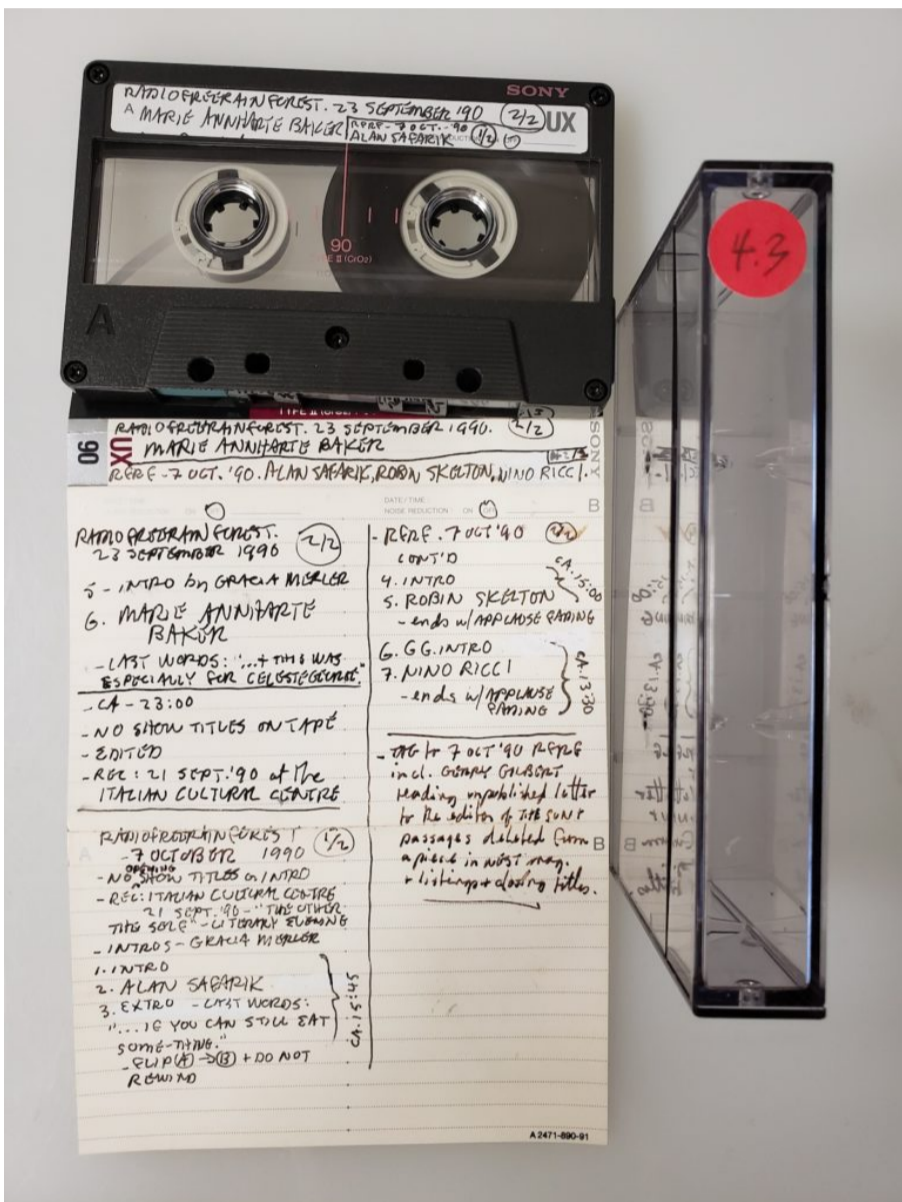 SONY
RADIOFREERAINFOREST. 23 SEPTEMBER '90 2/2
A MARIE ANNHARTE BAKER RFRF - 7 OCT. - '90 1/2
UX
ALAN SAFARIK
90
TYPE II (CrO2)
A
4.3
90
UX
SONY
RADIOFREERAINFOREST. 23 SEPTEMBER 1990. 2/2
MARIE ANNHARTE BAKER
RFRF - 7 OCT. '90. ALAN SAFARIK, ROBIN SKELTON, NINO RICCI.
RADIOFREERAINFOREST.
23 SEPTEMBER 1990 2/2
5 - INTRO by GRACIA MERLER
6. MARIE ANNHARTE
BAKER
- LAST WORDS: "...+ THIS WAS
ESPECIALLY FOR CELESTEGEORGE."
- CA - 23:00
- NO SHOW TITLES ON TAPE
- EDITED
- REC: 21 SEPT. '90 at the
ITALIAN CULTURAL CENTRE
A
RADIOFREERAINFOREST 1/2
- 7 OCTOBER 1990
- NO OPENING SHOW TITLES or INTRO
- REC: ITALIAN CULTURAL CENTRE
21 SEPT. '90 - "THE OTHER
THE SELF" - LITERARY EVENING
- INTROS - GRACIA MERLER
1. INTRO
2. ALAN SAFARIK
3. EXTRO - LAST WORDS:
"...IF YOU CAN STILL EAT
SOME-THING."
CA. 15:45
- FLIP (A) → (B) + DO NOT
REWIND
DATE / TIME
NOISE REDUCTION ON OFF
B
- RFRF. 7 OCT '90 2/2
CONT'D
4. INTRO
5. ROBIN SKELTON
- ends w/ APPLAUSE FADING
CA. 15:00
6. GG. INTRO
7. NINO RICCI
- ends w/ APPLAUSE
FADING
CA. 13:30
- TAG to 7 OCT '90 RFRF
incl. GERRY GILBERT
reading unpublished letter
to the editor of THE SUN +
passages deleted from
a piece in WEST mag.
+ listings + closing titles.
B
A 2471-890-91